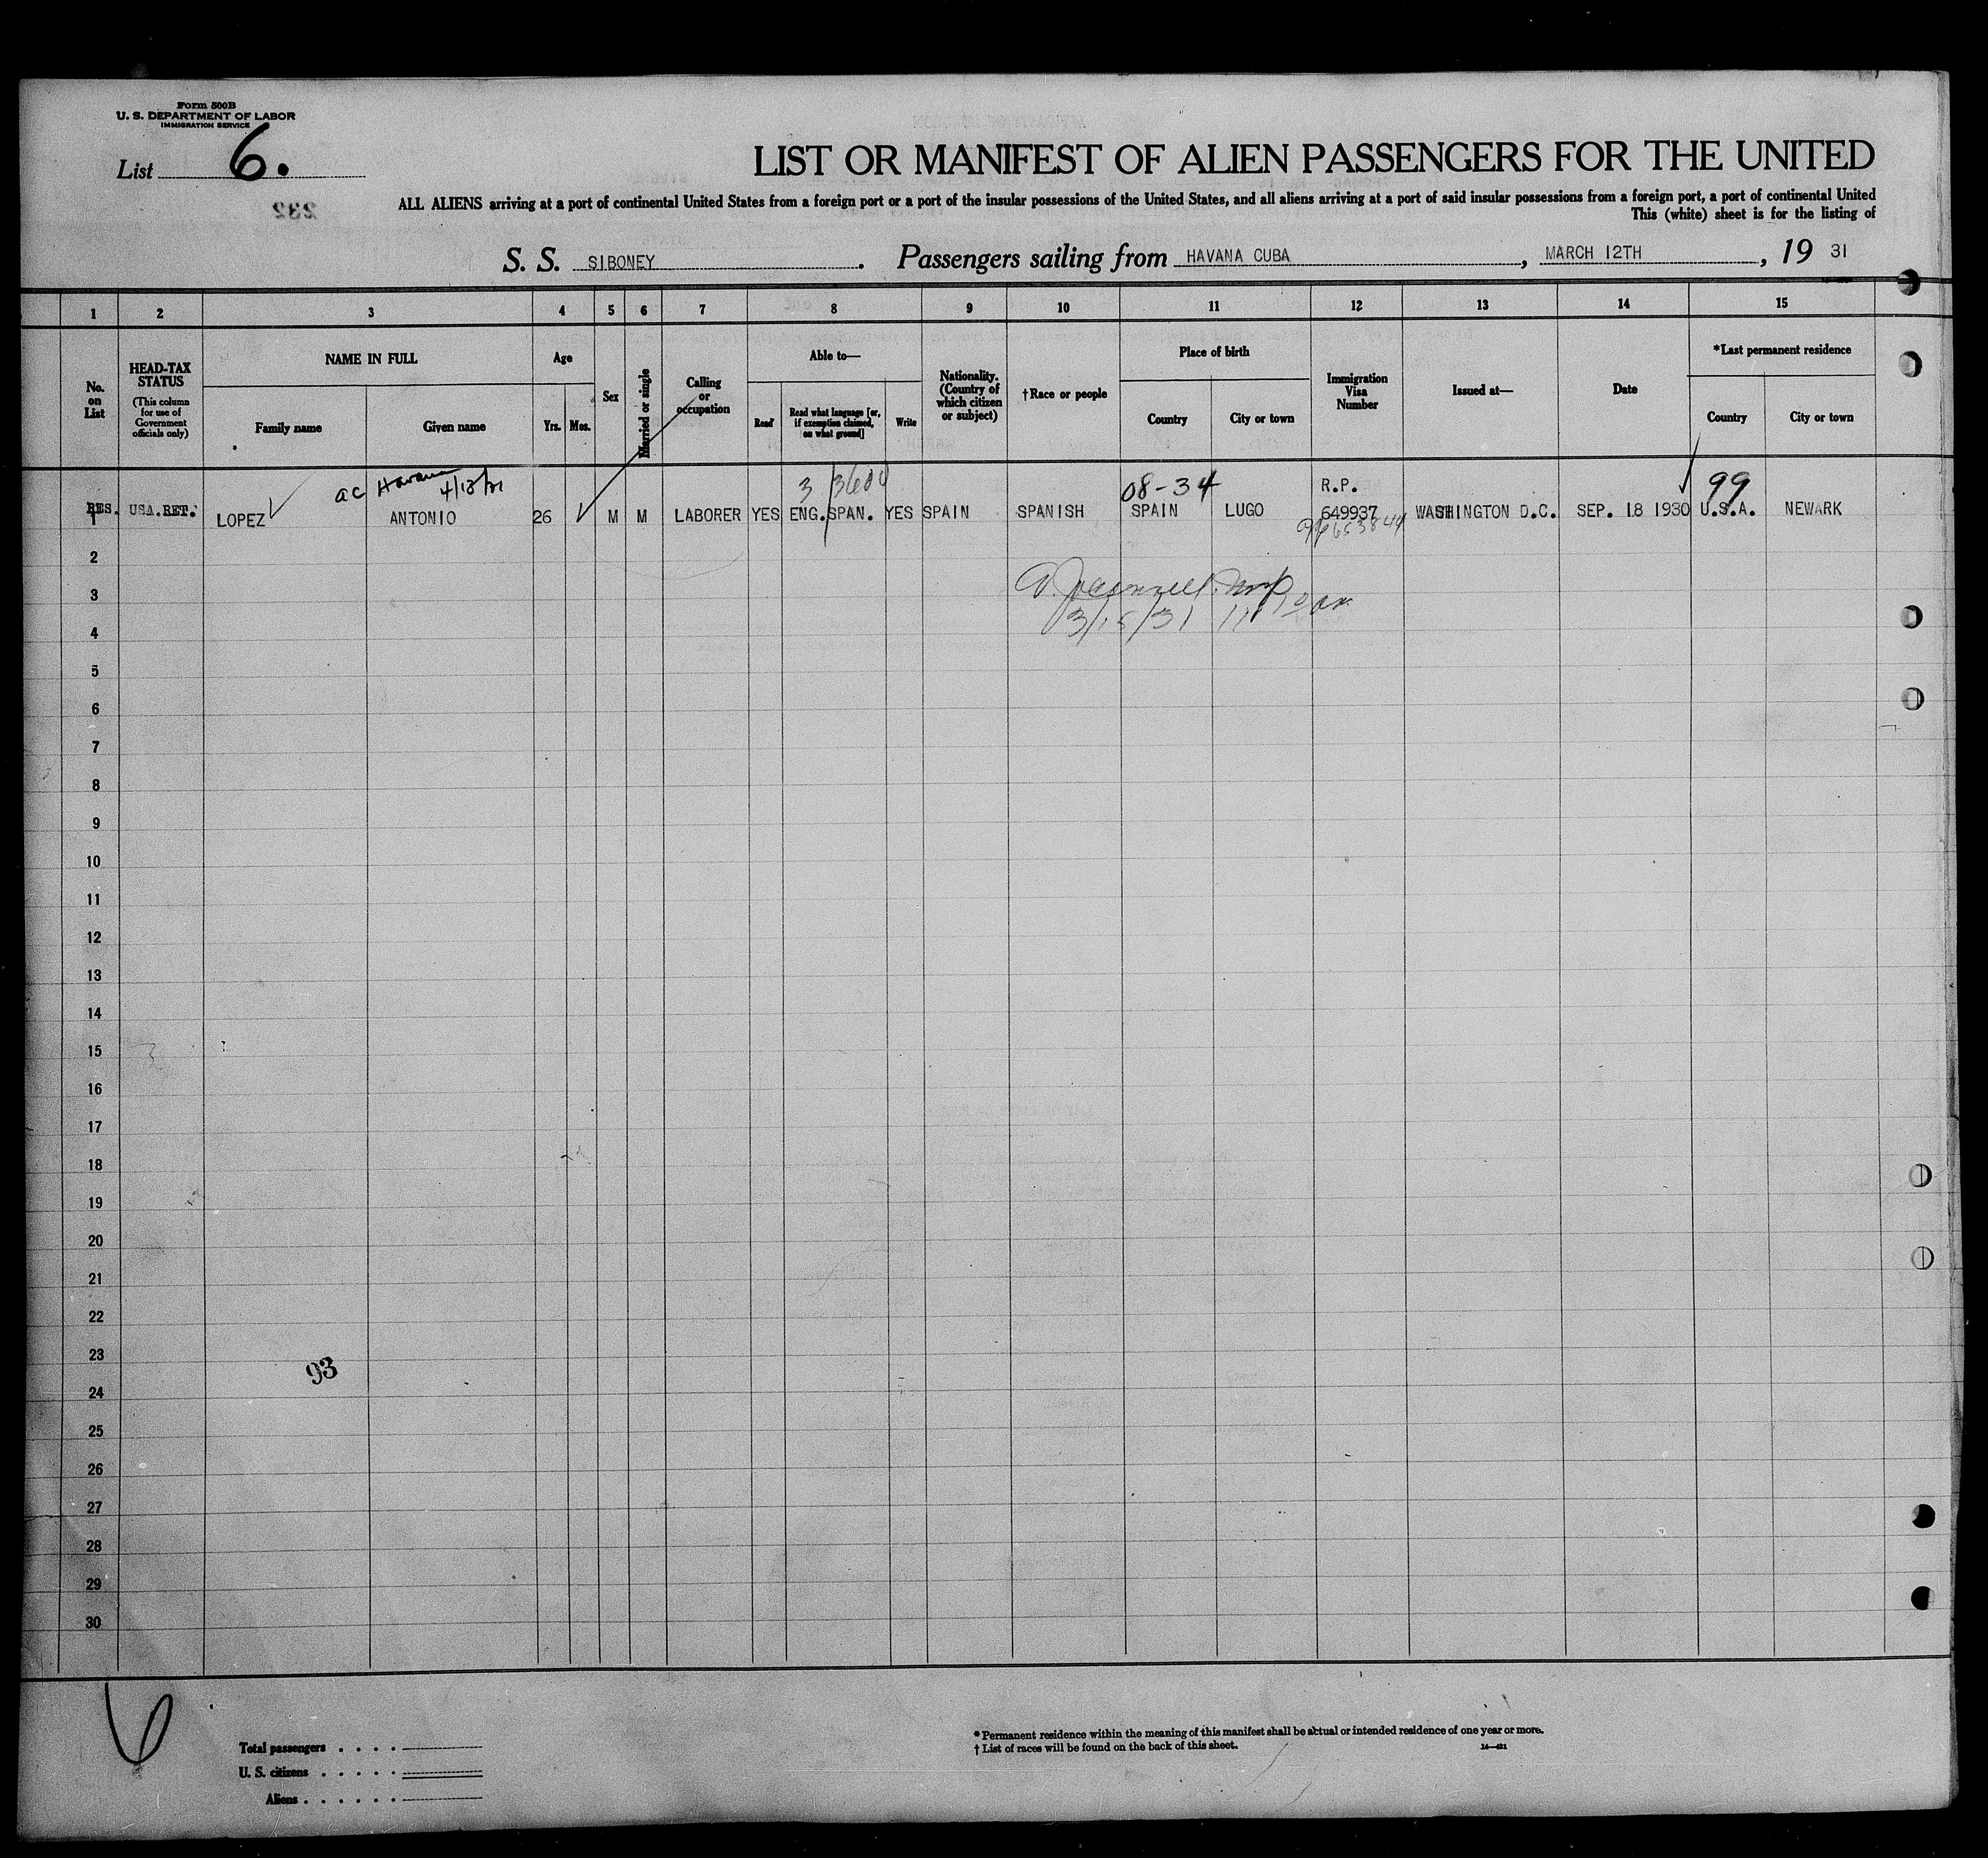 Form 500B
U. S. DEPARTMENT OF LABOR
IMMIGRATION SERVICE
List 6.
LIST OR MANIFEST OF ALIEN PASSENGERS FOR THE UNITED
ALL ALIENS arriving at a port of continental United States from a foreign port or a port of the insular possessions of the United States, and all aliens arriving at a port of said insular possessions from a foreign port, a port of continental United
This (white) sheet is for the listing of
232
S. S. SIBONEY. Passengers sailing from HAVANA CUBA, MARCH 12TH, 19 31
1 2 3 4 5 6 7 8 9 10 11 12 13 14 15
No. on List
HEAD-TAX STATUS (This column for use of Government officials only)
NAME IN FULL
Family name
Given name
Age
Yrs.
Mos.
Sex
Married or single
Calling or occupation
Able to—
Read
Read what language [or, if exemption claimed, on what ground]
Write
Nationality. (Country of which citizen or subject)
†Race or people
Place of birth
Country
City or town
Immigration Visa Number
Issued at—
Date
*Last permanent residence
Country
City or town
ac Havana 4/13/31 3 08-34 R.P. 99
RES. 1 USA.RET. LOPEZ ANTONIO 26 M M LABORER YES ENG.SPAN. YES SPAIN SPANISH SPAIN LUGO 649937 WASHINGTON D.C. SEP. 18 1930 U.S.A. NEWARK
2
3
3/15/31
4
5
6
7
8
9
10
11
12
13
14
15
16
17
18
19
20
21
22
23
93
24
25
26
27
28
29
30
6
Total passengers . . . .
U. S. citizens . . . . .
Aliens . . . . . .
* Permanent residence within the meaning of this manifest shall be actual or intended residence of one year or more.
† List of races will be found on the back of this sheet.